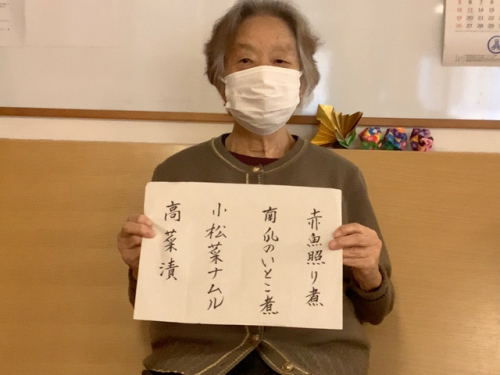 赤魚照り煮
南瓜のいとこ煮
小松菜ナムル
高菜漬